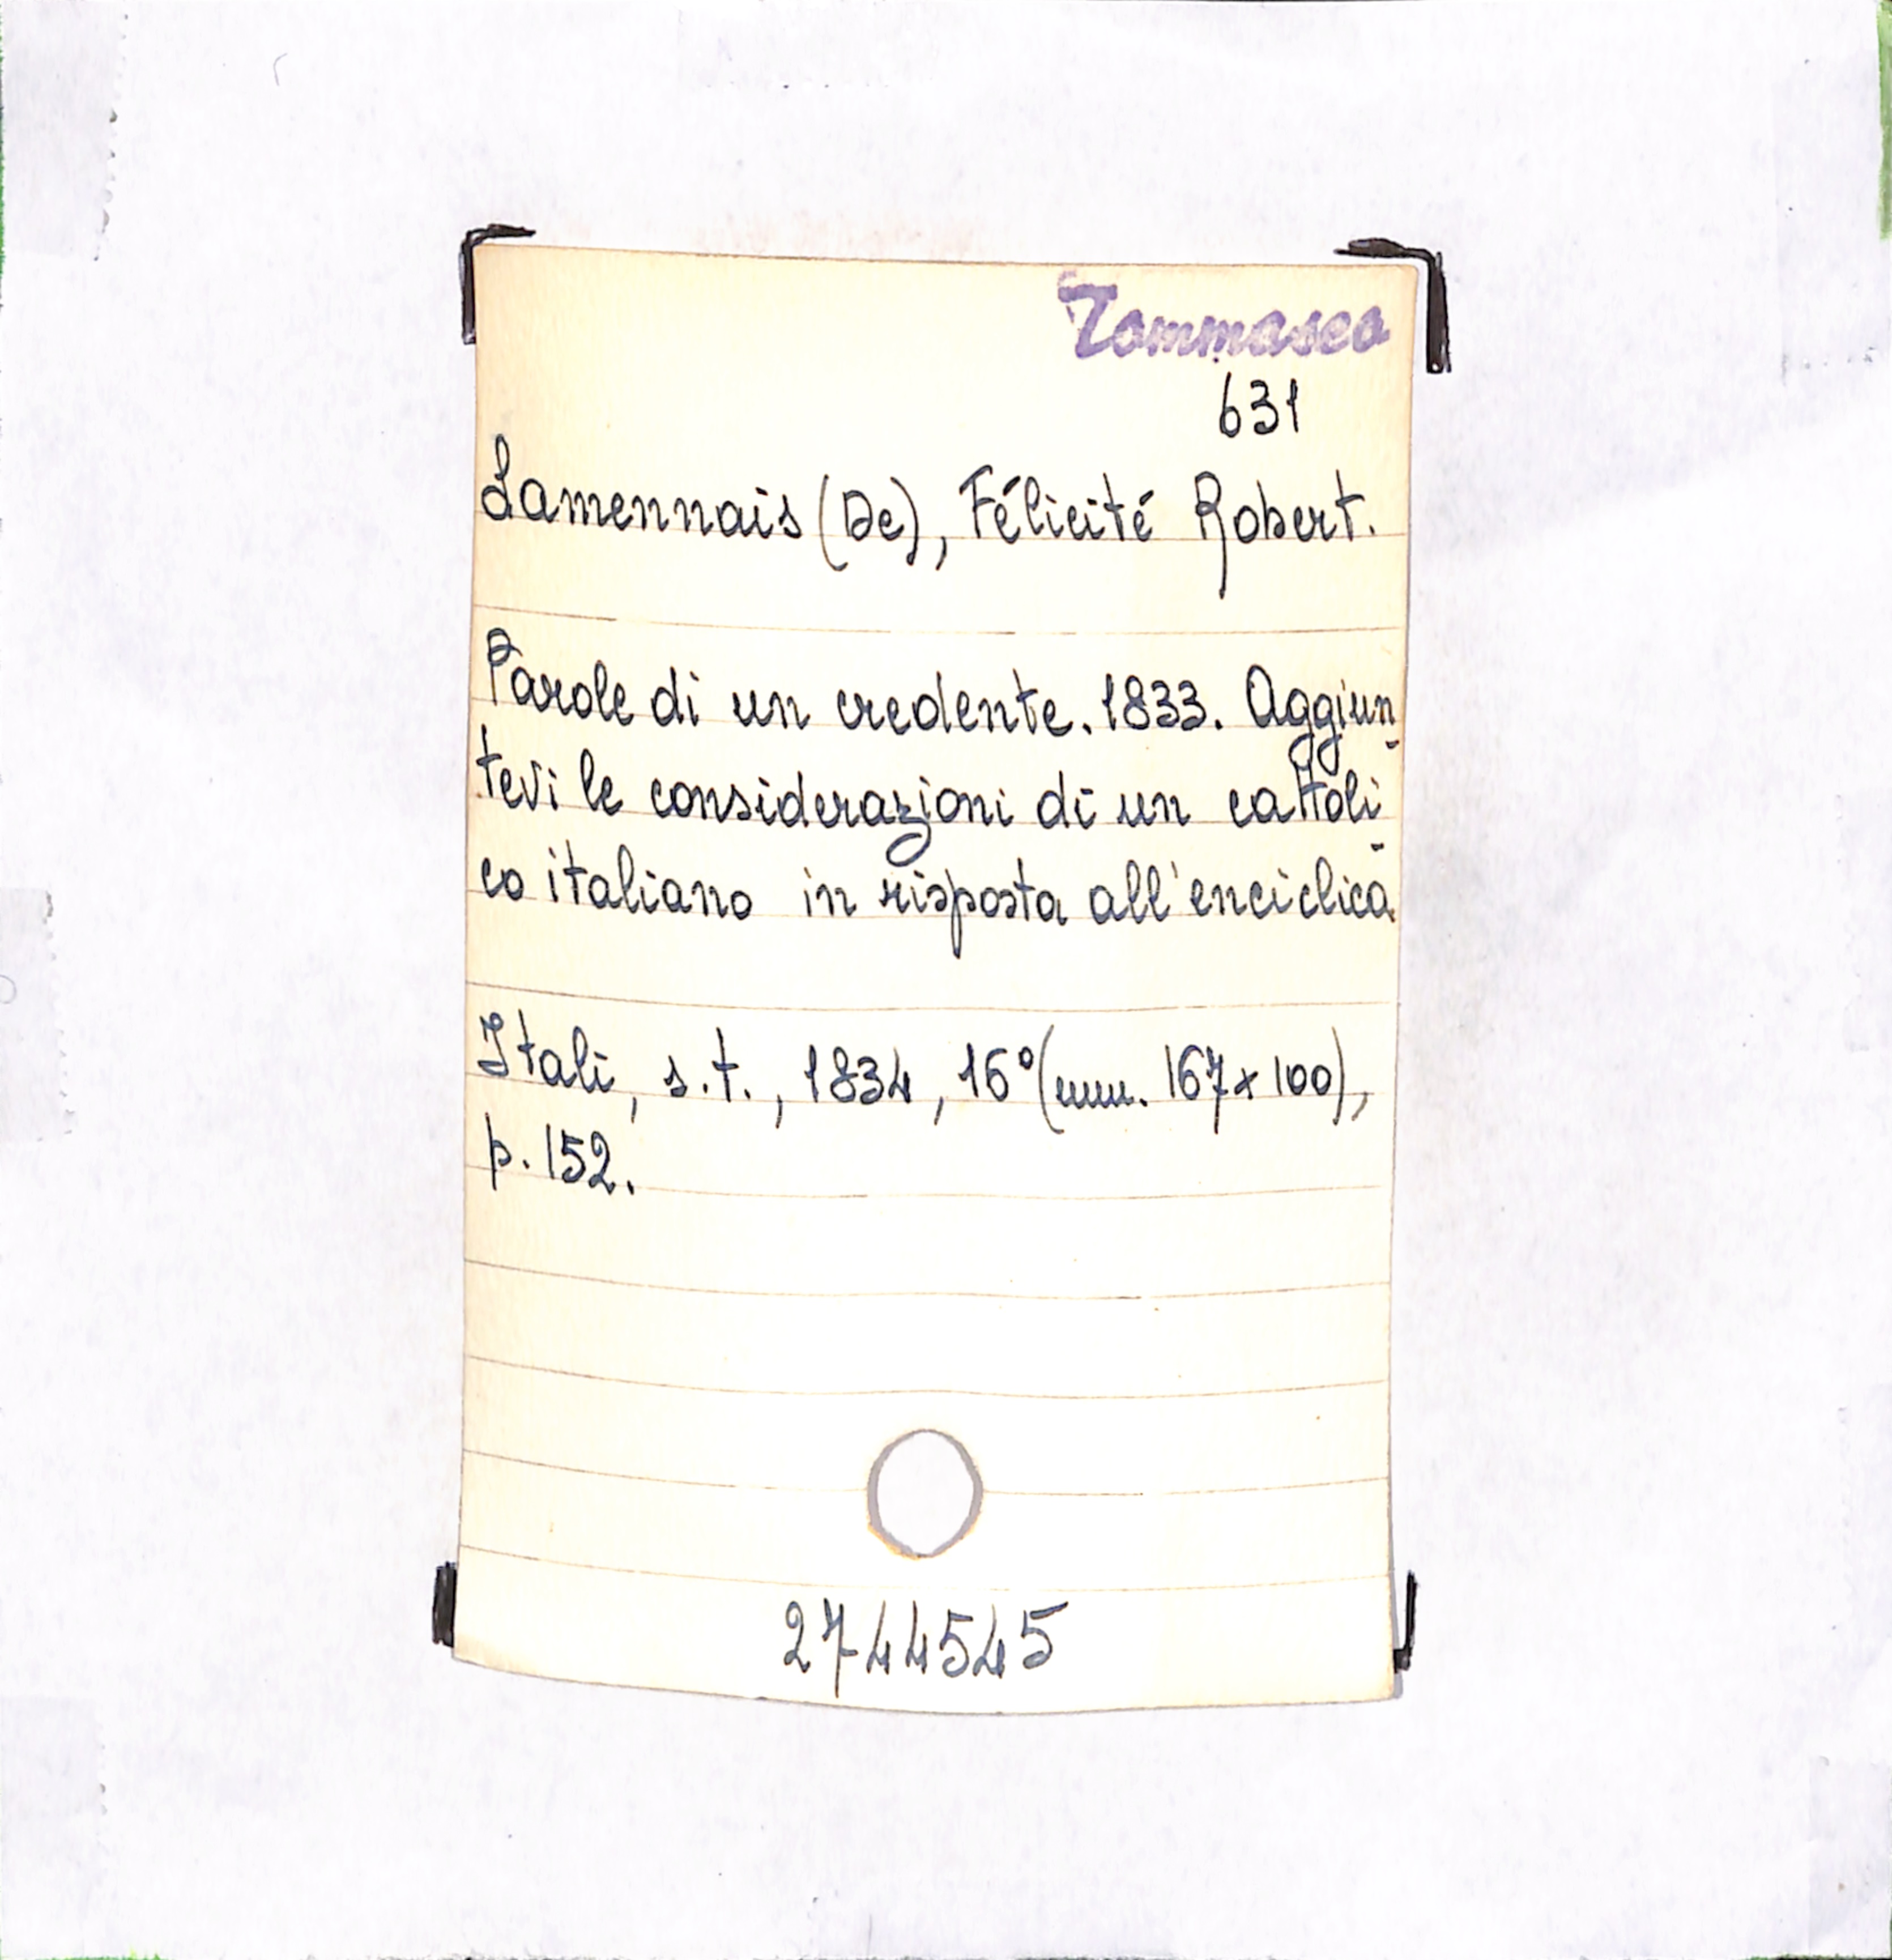 Tommaseo
631
Lamennais (De), Félicité Robert.
Parole di un credente. 1833. Aggiun-
tevi le considerazioni di un cattoli-
co italiano in risposta all'enciclica
Itali, s.t., 1834, 16° (mm. 167x100),
p. 152.
2744545